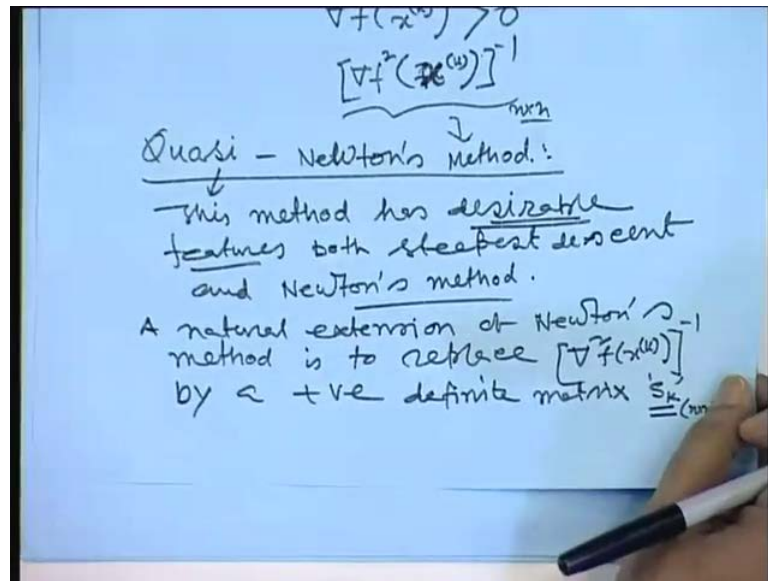 ∇f(x^(k)) > 0
[∇f²(x^(k))]⁻¹
n×n
Quasi - Newton's Method.:
This method has desirable
features both steepest descent
and Newton's method.
A natural extension of Newton's
method is to replace [∇²f(x^(k))]⁻¹
by a +ve definite matrix 'Sₖ'